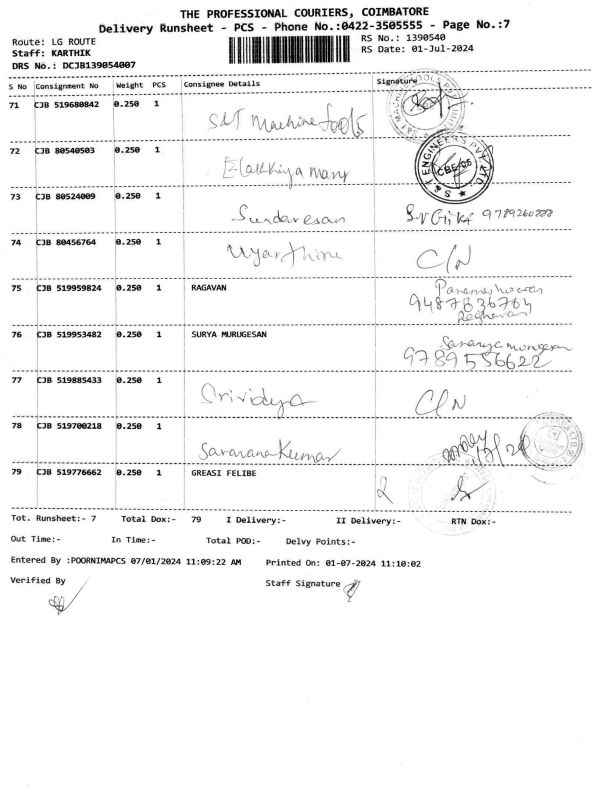 THE PROFESSIONAL COURIERS, COIMBATORE
Delivery Runsheet - PCS - Phone No.:0422-3505555 - Page No.:7
Route: LG ROUTE RS No.: 1390540
Staff: KARTHIK RS Date: 01-Jul-2024
DRS No.: DCJB139054007
S No Consignment No Weight PCS Consignee Details Signature
71 CJB 519680842 0.250 1 S&T Machine Tools
72 CJB 80540503 0.250 1 Elakkiya Mary
ENGINEERS PVT LTD
CBE-05
73 CJB 80524009 0.250 1 Sundaresan 9789260888
74 CJB 80456764 0.250 1 C/N
75 CJB 519959824 0.250 1 RAGAVAN Parameshwaran
9487636764
Raghavan
76 CJB 519953482 0.250 1 SURYA MURUGESAN
9789556622
77 CJB 519885433 0.250 1 Srividya C/N
78 CJB 519700218 0.250 1 Saravana Kumar
79 CJB 519776662 0.250 1 GREASI FELIBE
Tot. Runsheet:- 7 Total Dox:- 79 I Delivery:- II Delivery:- RTN Dox:-
Out Time:- In Time:- Total POD:- Delvy Points:-
Entered By :POORNIMAPCS 07/01/2024 11:09:22 AM Printed On: 01-07-2024 11:10:02
Verified By Staff Signature